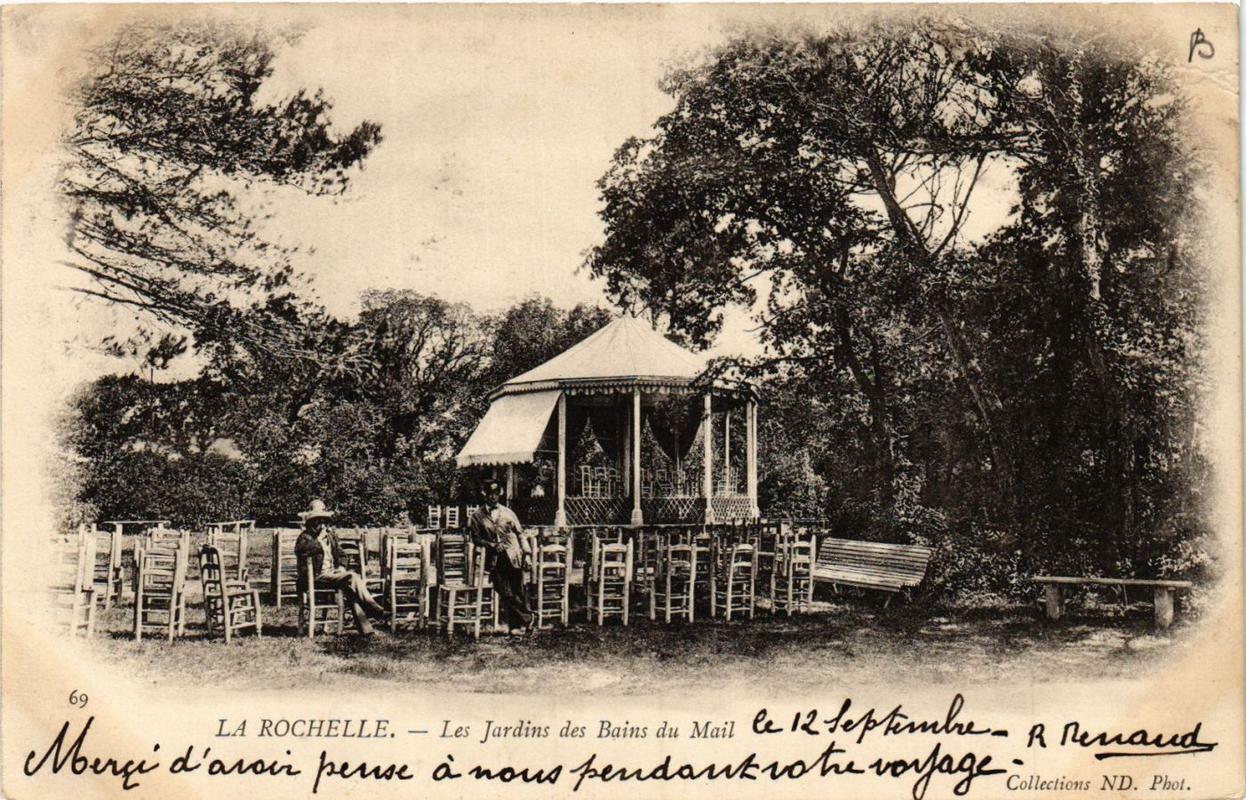 B
69
LA ROCHELLE. — Les Jardins des Bains du Mail le 12 Septembre - R Renaud
Merçi d'avoir pense à nous pendant votre voyage -
Collections ND. Phot.